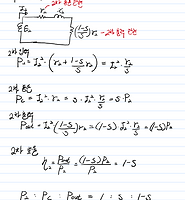 2차 동손 전력
I₂ r₂ x₂
E₂
(1-S/S)r₂ - 2차 출력 전력
2차 입력
P₂ = I₂² · (r₂ + 1-S/S r₂) = I₂² · r₂/S
2차 동손
Pc = I₂² · r₂ = S · I₂² · r₂/S = S · P₂
2차 출력
Pout = I₂² (1-S/S) r₂ = (1-S) I₂² · r₂/S = (1-S)P₂
2차 효율
η₂ = Pout/P₂ = (1-S)P₂/P₂ = 1-S
P₂ : Pc : Pout = 1 : S : 1-S